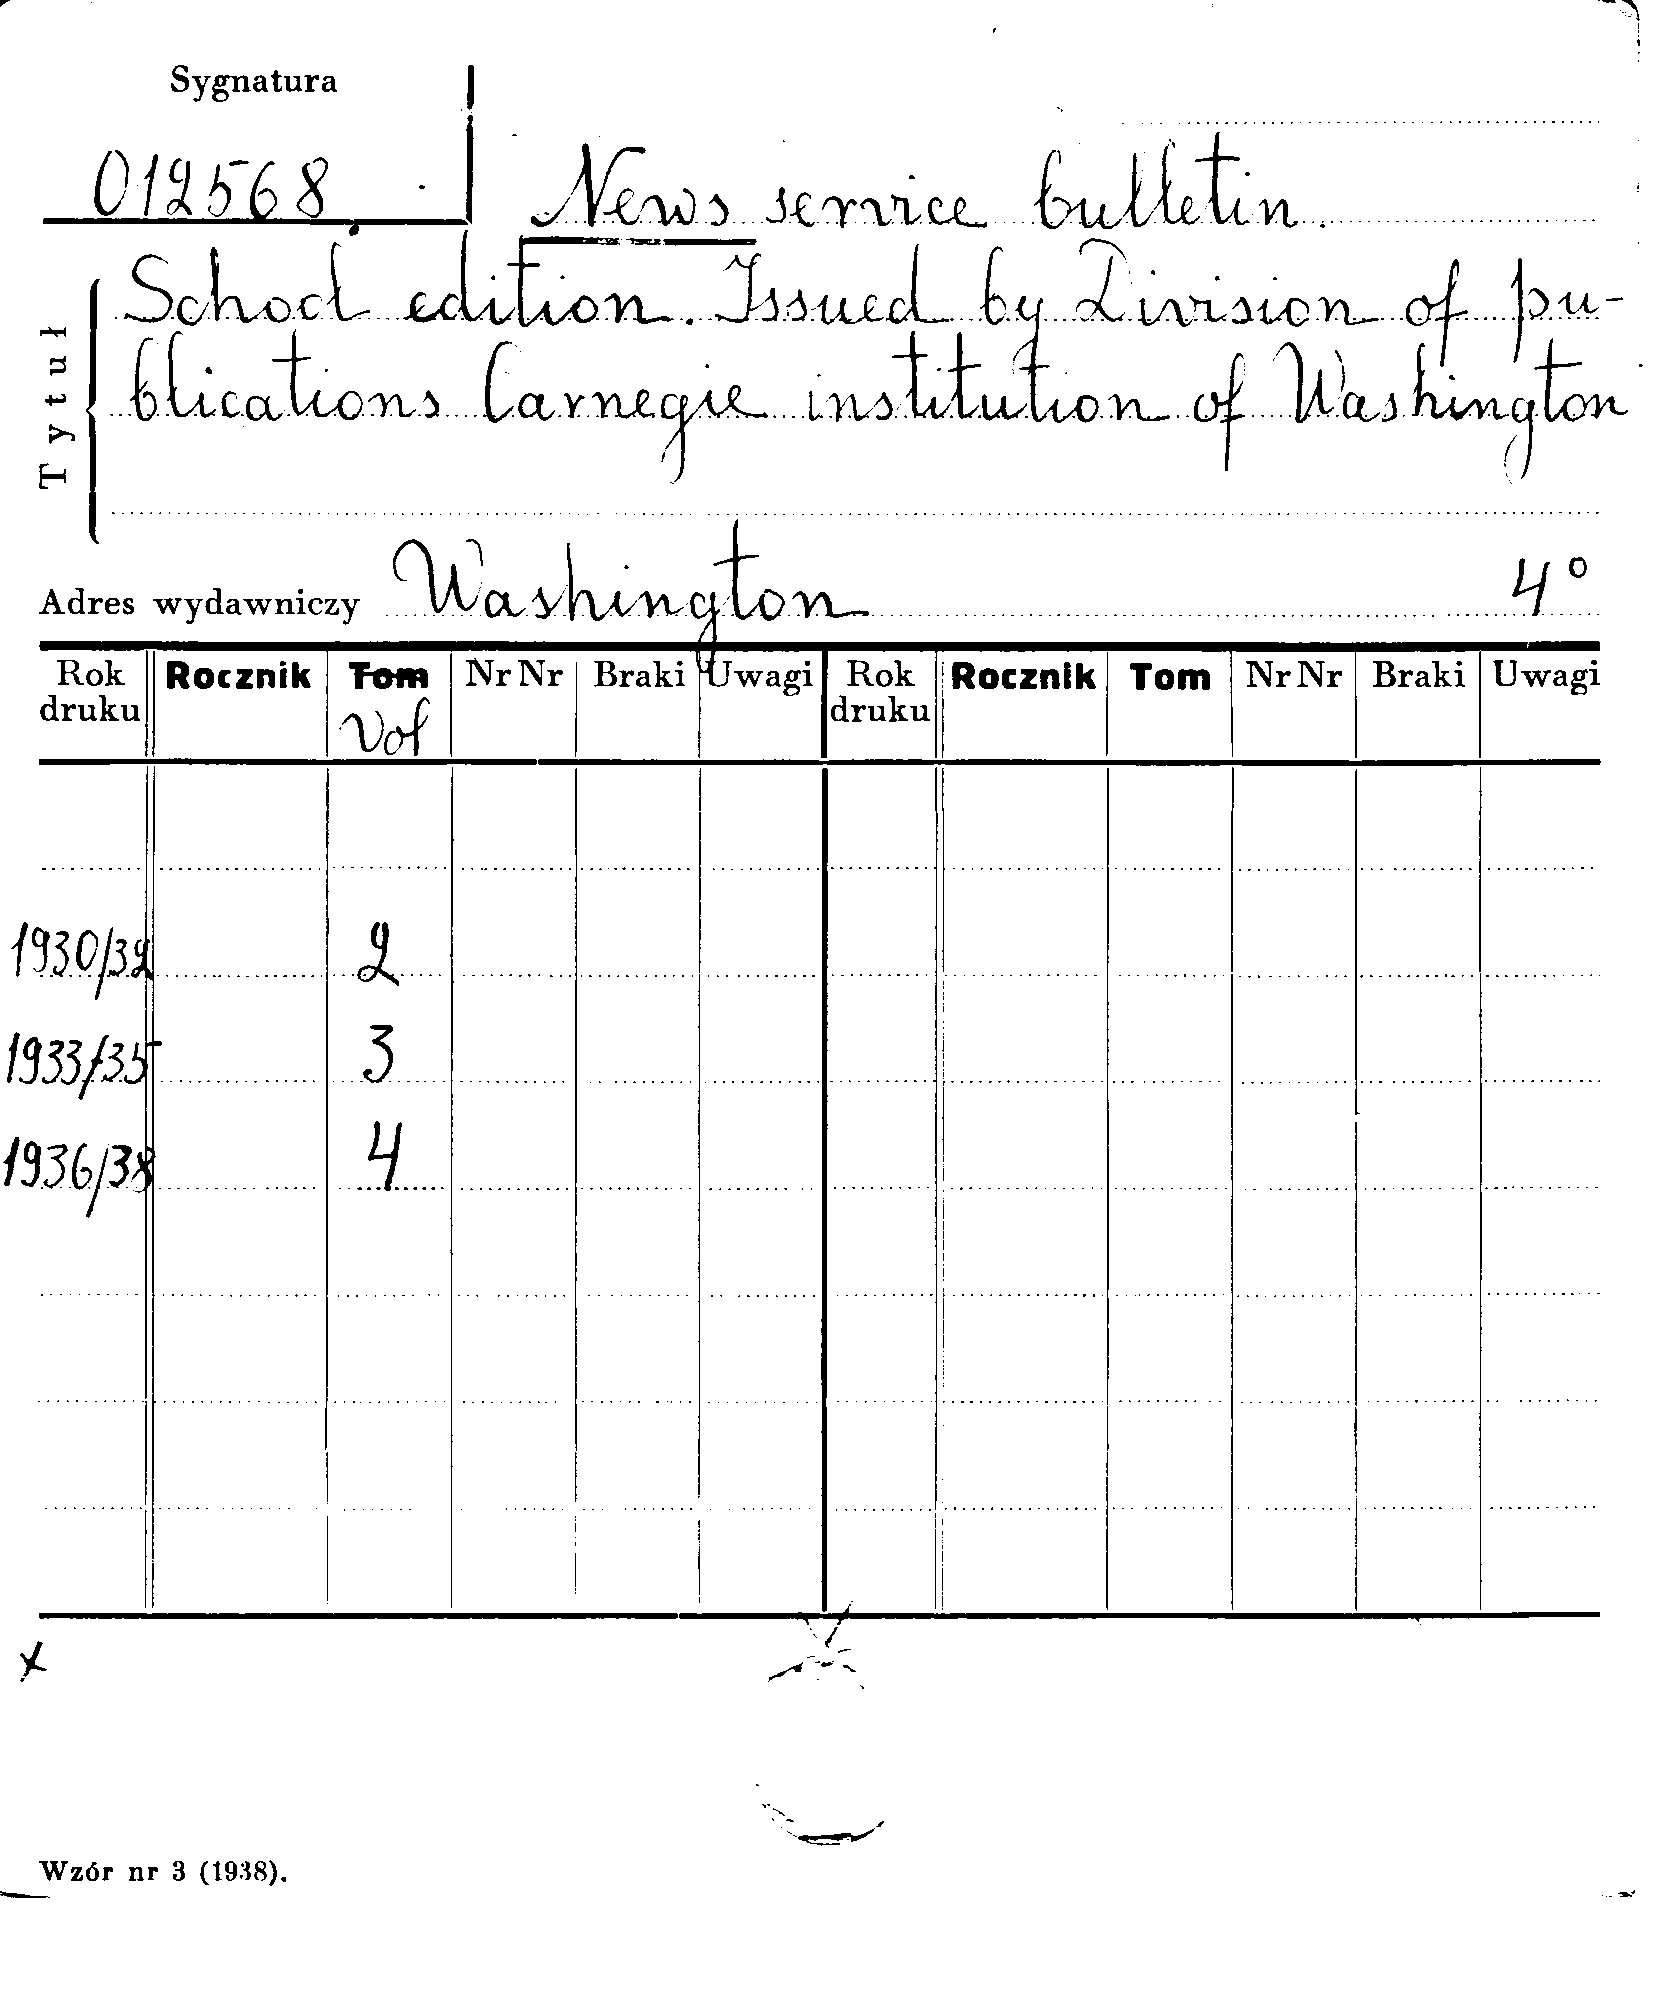 Sygnatura
012568
News service bulletin.
School edition. Issued by Division of pu-
blications Carnegie institution of Washington
Tytuł
Adres wydawniczy Washington 4°
Rok druku Rocznik Tom Vol Nr Nr Braki Uwagi Rok druku Rocznik Tom Nr Nr Braki Uwagi
1930/32 2
1933/35 3
1936/38 4
x
Wzór nr 3 (1938).